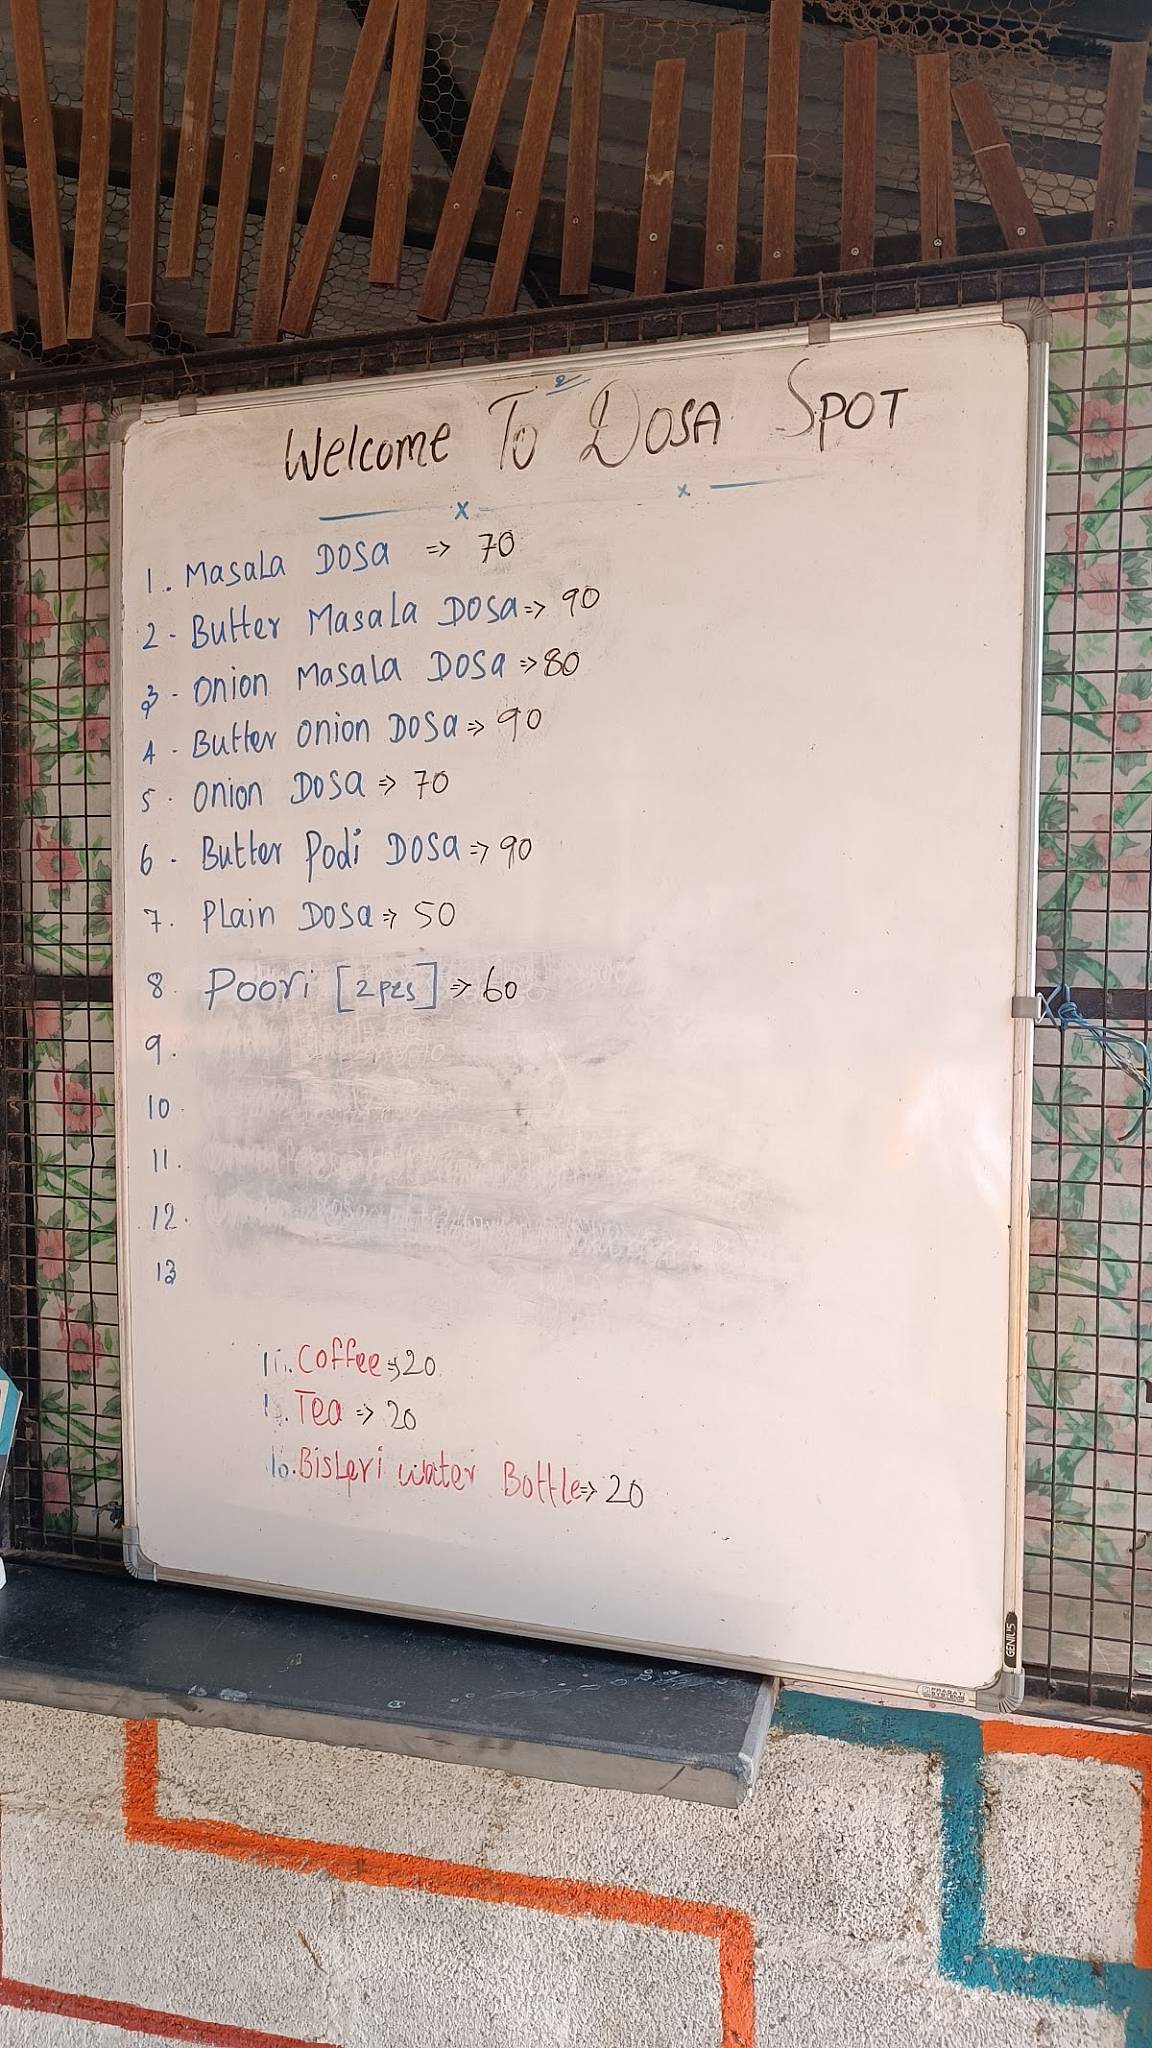 Welcome To DOSA SPOT
1. Masala DOSa => 70
2 - Butter Masala DOSa => 90
3 - Onion Masala DOSa => 80
4 - Butter Onion DOSa => 90
5 - Onion DOSa => 70
6 - Butter Podi DOSa => 90
7. Plain DOSa => 50
8 Poori [2 pcs] => 60
9.
10.
11.
12.
13
Coffee => 20
Tea => 20
Bisleri water Bottle => 20
GENIUS
PRAGATI SYSTEMS